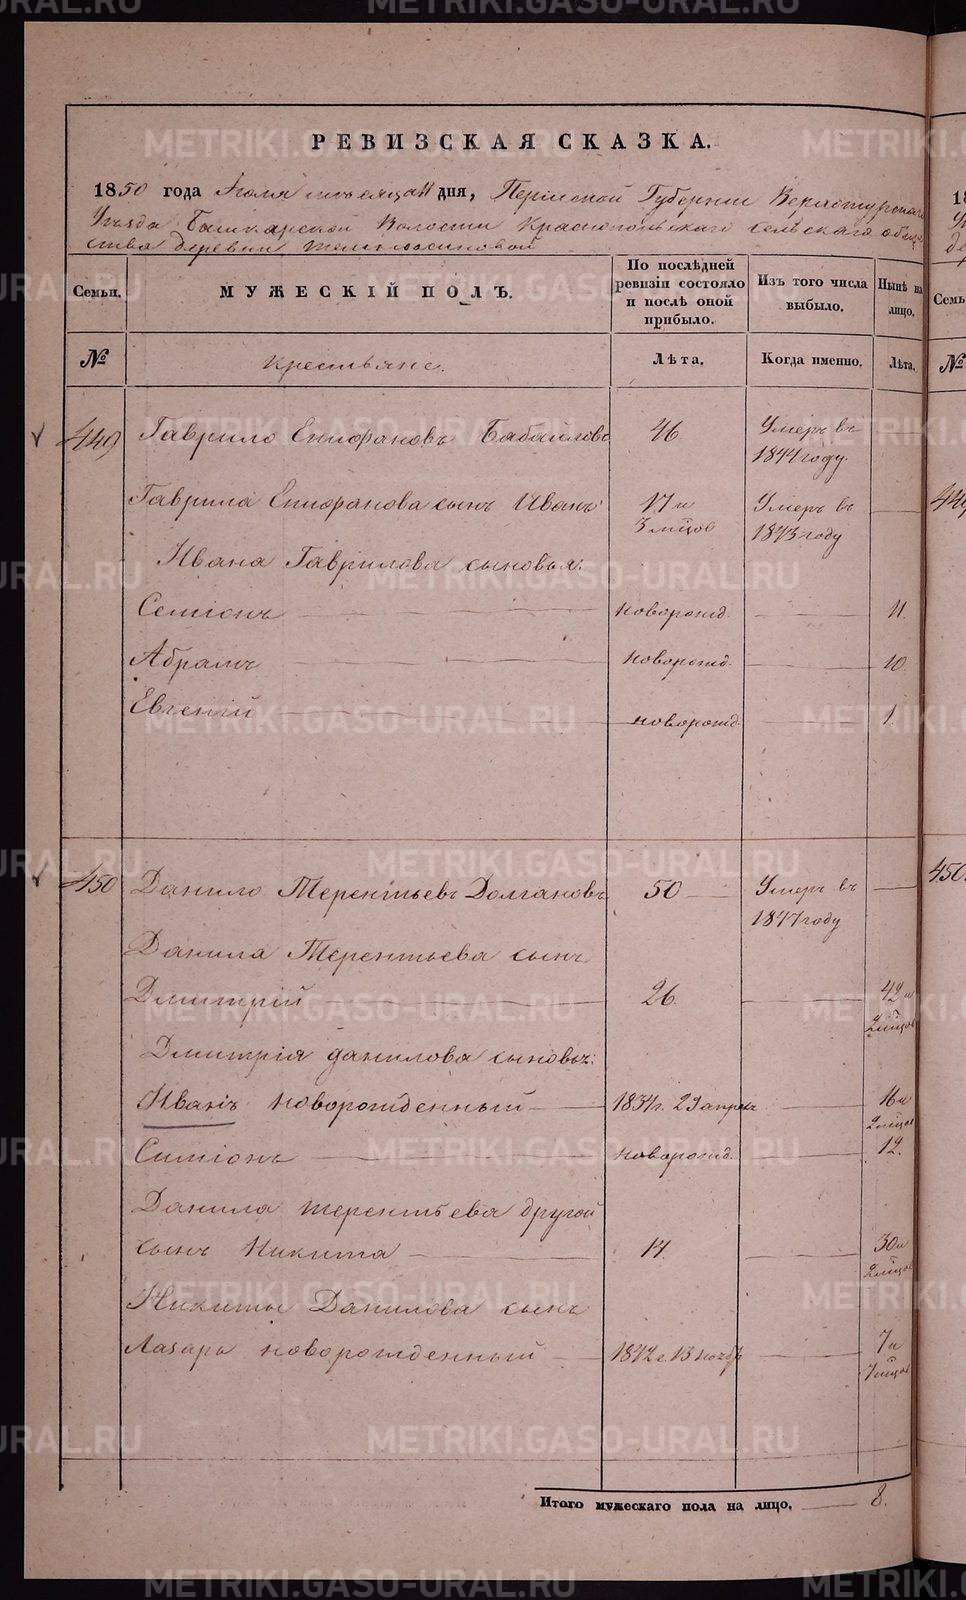 РЕВИЗСКАЯ СКАЗКА.
1850 года Июля месяца 11 дня, Пермской Губернии Верхотурскаго
Уезда Башкарской Волости Краснопольскаго сельскаго общес
тва деревни
Семьи. МУЖЕСКІЙ ПОЛЪ. По послѣдней ревизіи состояло и послѣ оной прибыло. Изъ того числа выбыло. Нынѣ на лицо.
№ Крестьяне. Лѣта. Когда именно. Лѣта.
449 Гаврило Епифановъ Бабайловъ 46 Умеръ въ 1844 году.
Гаврила Епифанова сынъ Иванъ 17 и 3 мѣцов Умеръ въ 1843 году
Ивана Гаврилова сыновья:
Семіонъ новорожд. 11.
Абрамъ новорожд. 10.
Евгеній новорожд. 1.
450 Данило Терентьевъ Долгановъ 50 Умеръ въ 1847 году
Данила Терентьева сынъ
Дмитрій 26. 42 и 2 мѣцов
Дмитрія Данилова сыновья:
Иванъ новорожденный 1834 г. 29 апрел 16 и 2 мѣцов
Симіонъ новорожд. 12.
Данила Терентьева другой
сынъ Никита 14. 30 и 2 мѣцов
Никиты Данилова сынъ
Лазарь новорожденный 1842 г. 13 ноябр 7 и 7 мѣцов
Итого мужескаго пола на лицо. 8.
METRIKI.GASO-URAL.RU